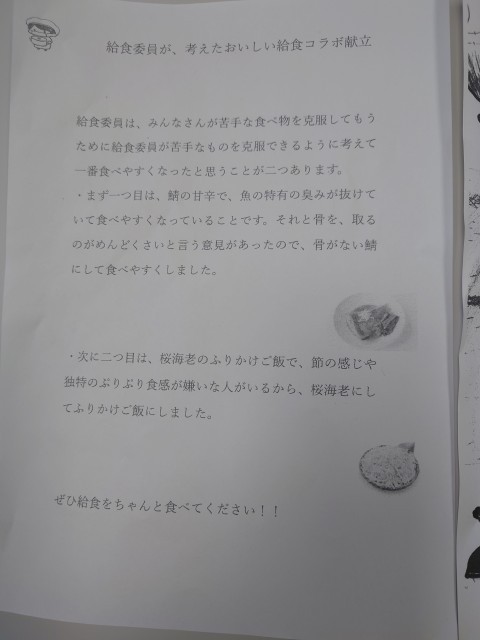 給食委員が、考えたおいしい給食コラボ献立
給食委員は、みんなさんが苦手な食べ物を克服してもう
ために給食委員が苦手なものを克服できるように考えて
一番食べやすくなったと思うことが二つあります。
・まず一つ目は、鯖の甘辛で、魚の特有の臭みが抜けて
いて食べやすくなっていることです。それと骨を、取る
のがめんどくさいと言う意見があったので、骨がない鯖
にして食べやすくしました。
・次に二つ目は、桜海老のふりかけご飯で、節の感じや
独特のぷりぷり食感が嫌いな人がいるから、桜海老にし
てふりかけご飯にしました。
ぜひ給食をちゃんと食べてください！！